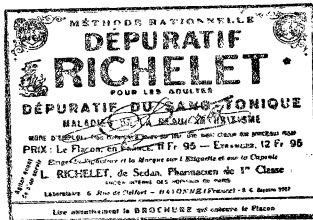 MÉTHODE RATIONNELLE
DÉPURATIF
RICHELET
POUR LES ADULTES
DÉPURATIF DU SANG-TONIQUE
MALADIES DE LA PEAU
MODE D'EMPLOI
PRIX : Le Flacon, en FRANCE, 11 Fr 95 - ETRANGER, 12 Fr 95
Exiger la Signature et la Marque sur l'Etiquette et sur la Capsule
L. RICHELET, de Sedan, Pharmacien de 1re Classe
ANCIEN INTERNE DES HOPITAUX DE PARIS
Laboratoire 6 Rue de Belfort - BAYONNE (France)
Lire attentivement la BROCHURE qui entoure le Flacon